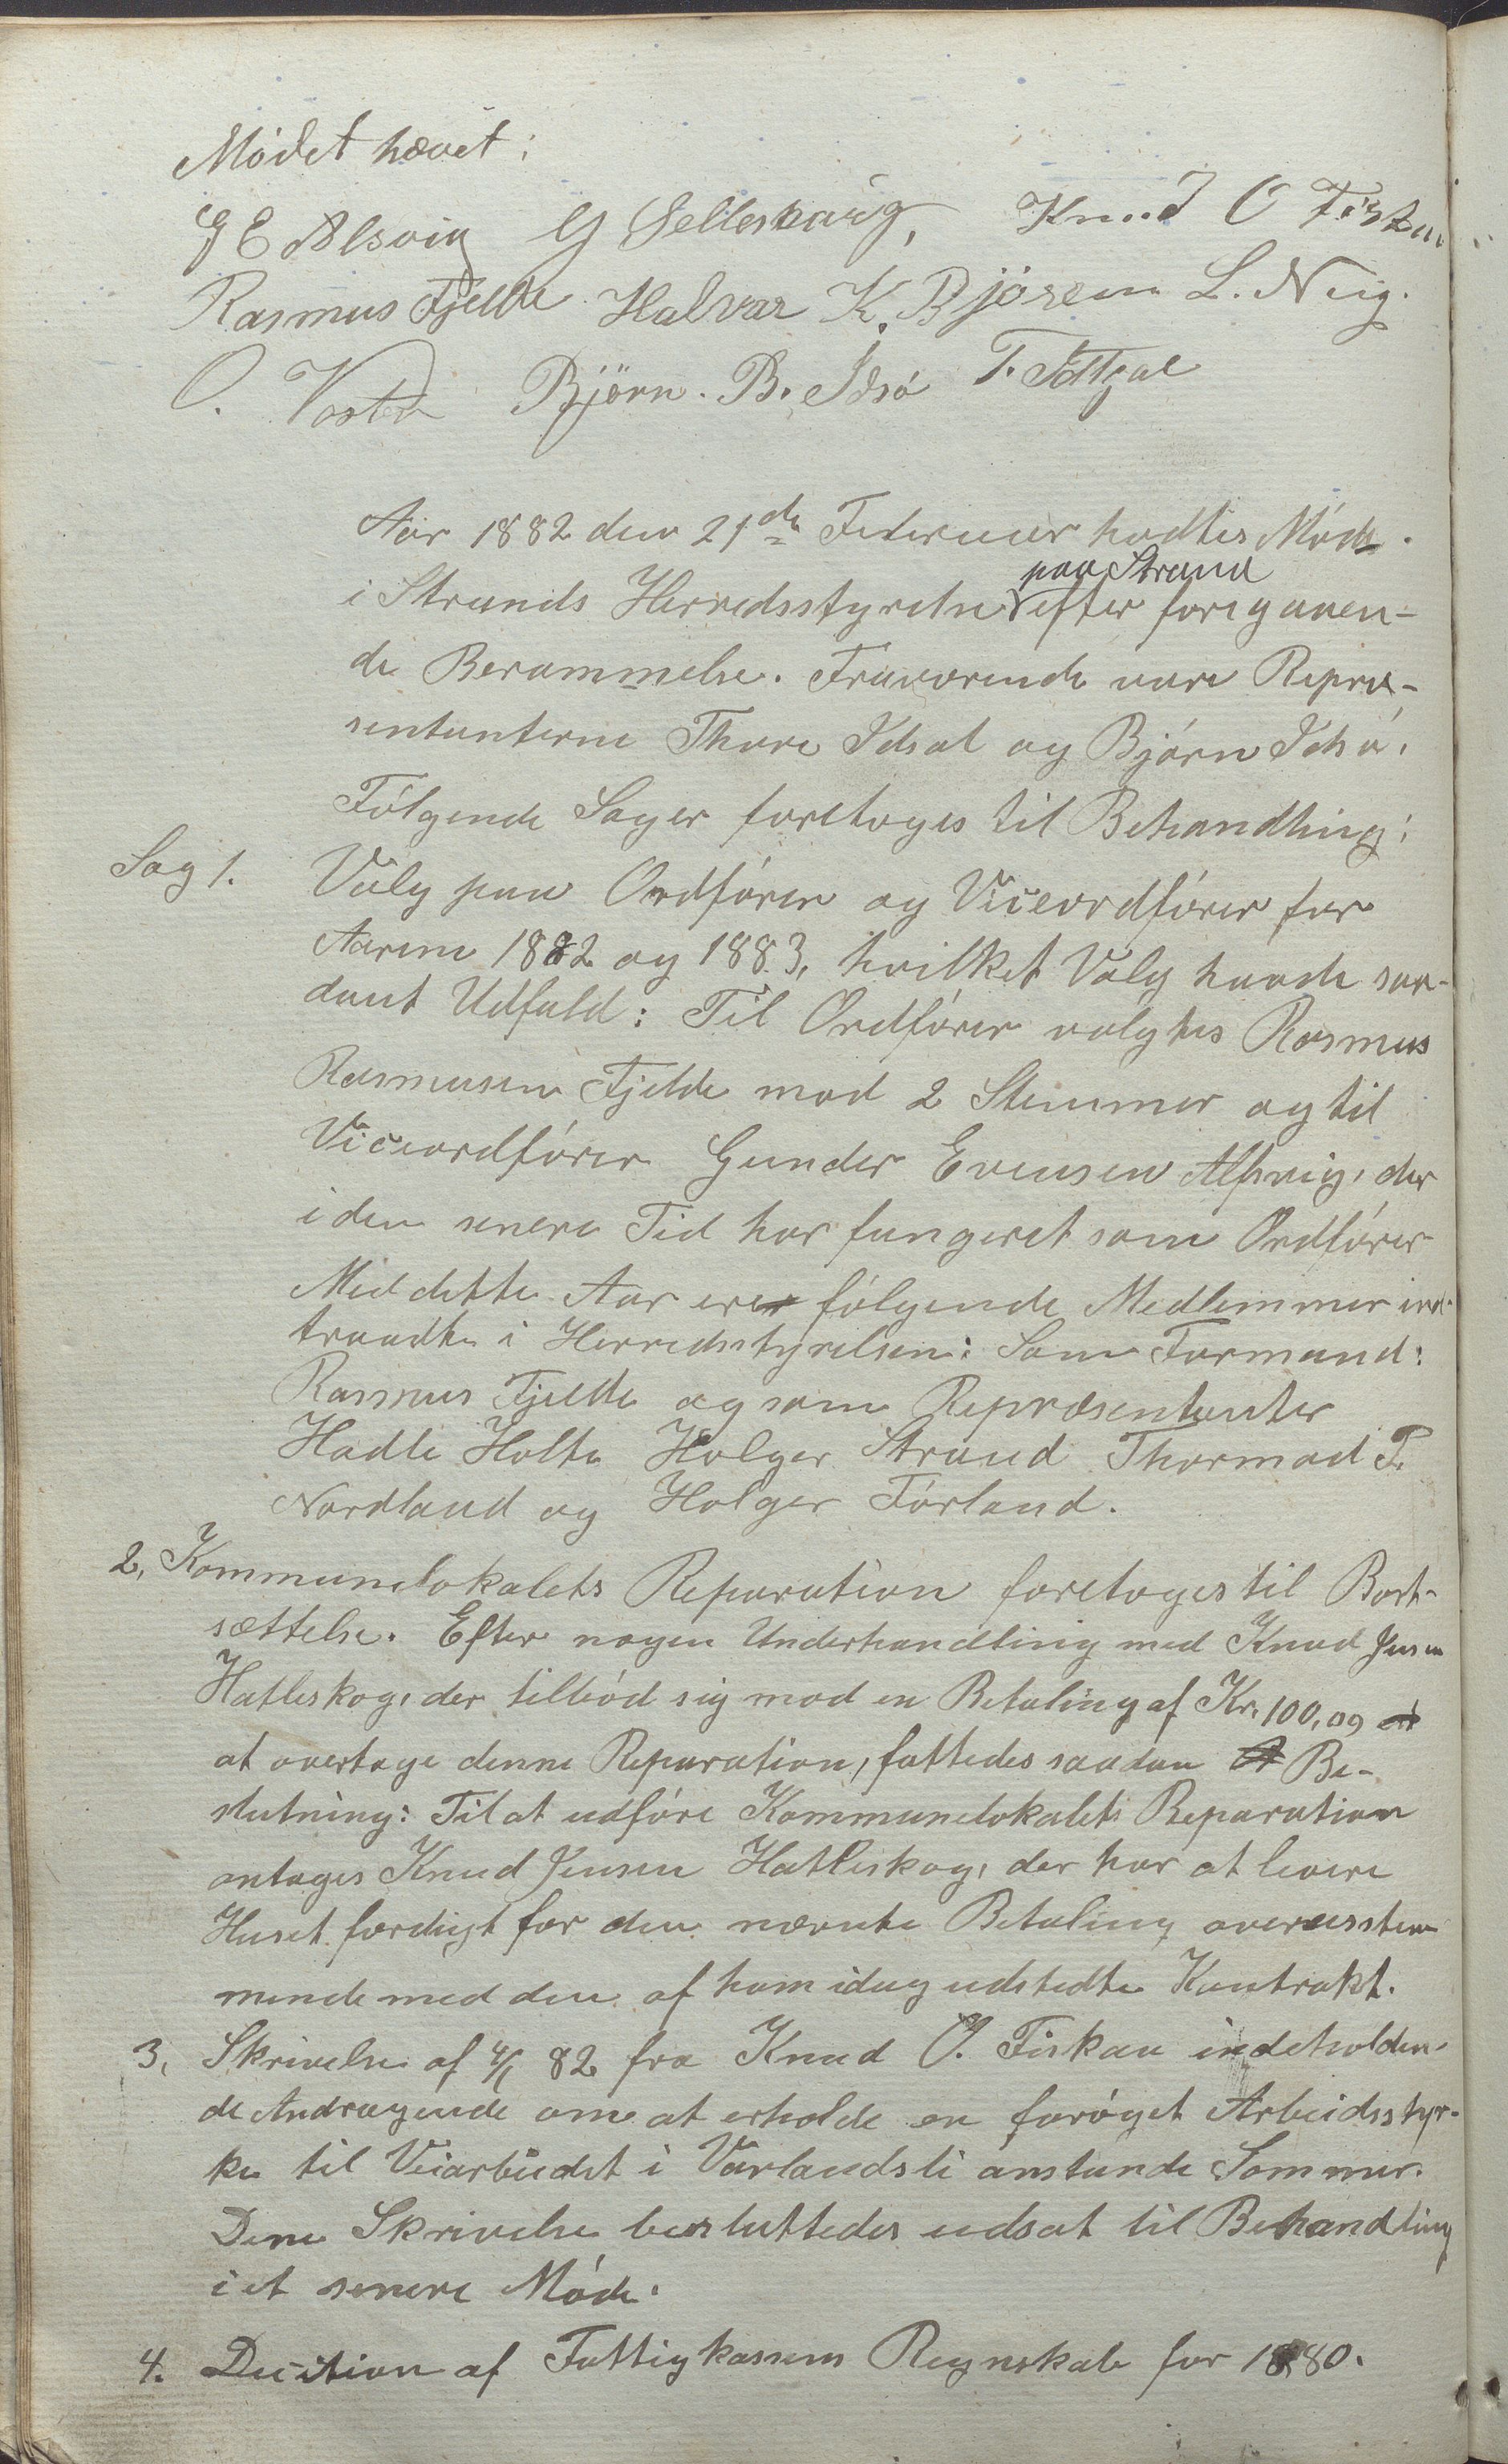 Mödet hævet:
G E Alsvig G Selleskaug, Knud O Fiskau
Rasmus Fjelde Halvar K. Björen L. Nag.
O. Vostad Björn. B. Idsö T. Idsal
Aar 1882 den 21de Februar holdtes Möde
i Strands Herredsstyrelse paa Strand efter foregaaen-
de Berammelse. Fraværende vare Repræ-
sentanterne Thore Idsal og Björn Idsö.
Fölgende Sager foretoges til Behandling:
Sag 1. Valg paa Ordförer og Viceordförer for
Aarene 1882 og 1883, hvilket Valg havde saa-
dant Udfald: Til Ordförer valgtes Rasmus
Rasmusen Fjelde mod 2 Stemmer og til
Viceordförer Gunder Evensen Alsvig, der
i den senere Tid har fungeret som Ordförer
Med dette Aar ere fölgende Medlemmer ind-
traadte i Herredsstyrelsen: Som Formand:
Rasmus Fjelde og som Repræsentanter
Hadle Holta Holger Strand Thormod T.
Nordland og Holger Förland.
2, Kommunelokalets Reparation foretoges til Bort-
sættelse. Efter nogen Underhandling med Knud Jensen
Hatleskog, der tilböd sig mod en Betaling af Kr. 100,00
at overtage denne Reparation, fattedes saadan Be-
slutning: Til at udföre Kommunelokalets Reparation
antoges Knud Jensen Hatleskog, der har at levere
Huset færdigt for den nævnte Betaling overensstem
mende med den af ham idag udstedte Kontrakt.
3, Skrivelse af 4/1 82 fra Knud O. Fiskau indeholden-
de Andragende om at erholde en foröget Arbeidsstyr-
ke til Veiarbeidet i Vårlandsli anstunde Sommer.
Dene Skrivelse besluttedes udsat til Behandling
i et senere Möde.
4. Decition af Fattigkassens Regnskab for 1880.